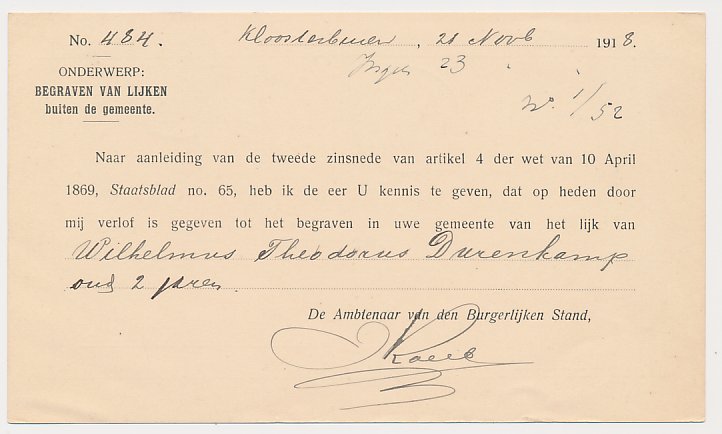 No. 484. Kloosterburen, 21 Novb 1918.
Ingek 23 " "
ONDERWERP:
BEGRAVEN VAN LIJKEN
buiten de gemeente.
No. 1/52
Naar aanleiding van de tweede zinsnede van artikel 4 der wet van 10 April
1869, Staatsblad no. 65, heb ik de eer U kennis te geven, dat op heden door
mij verlof is gegeven tot het begraven in uwe gemeente van het lijk van
Wilhelmus Theodorus Durenkamp
oud 2 jaren.
De Ambtenaar van den Burgerlijken Stand,